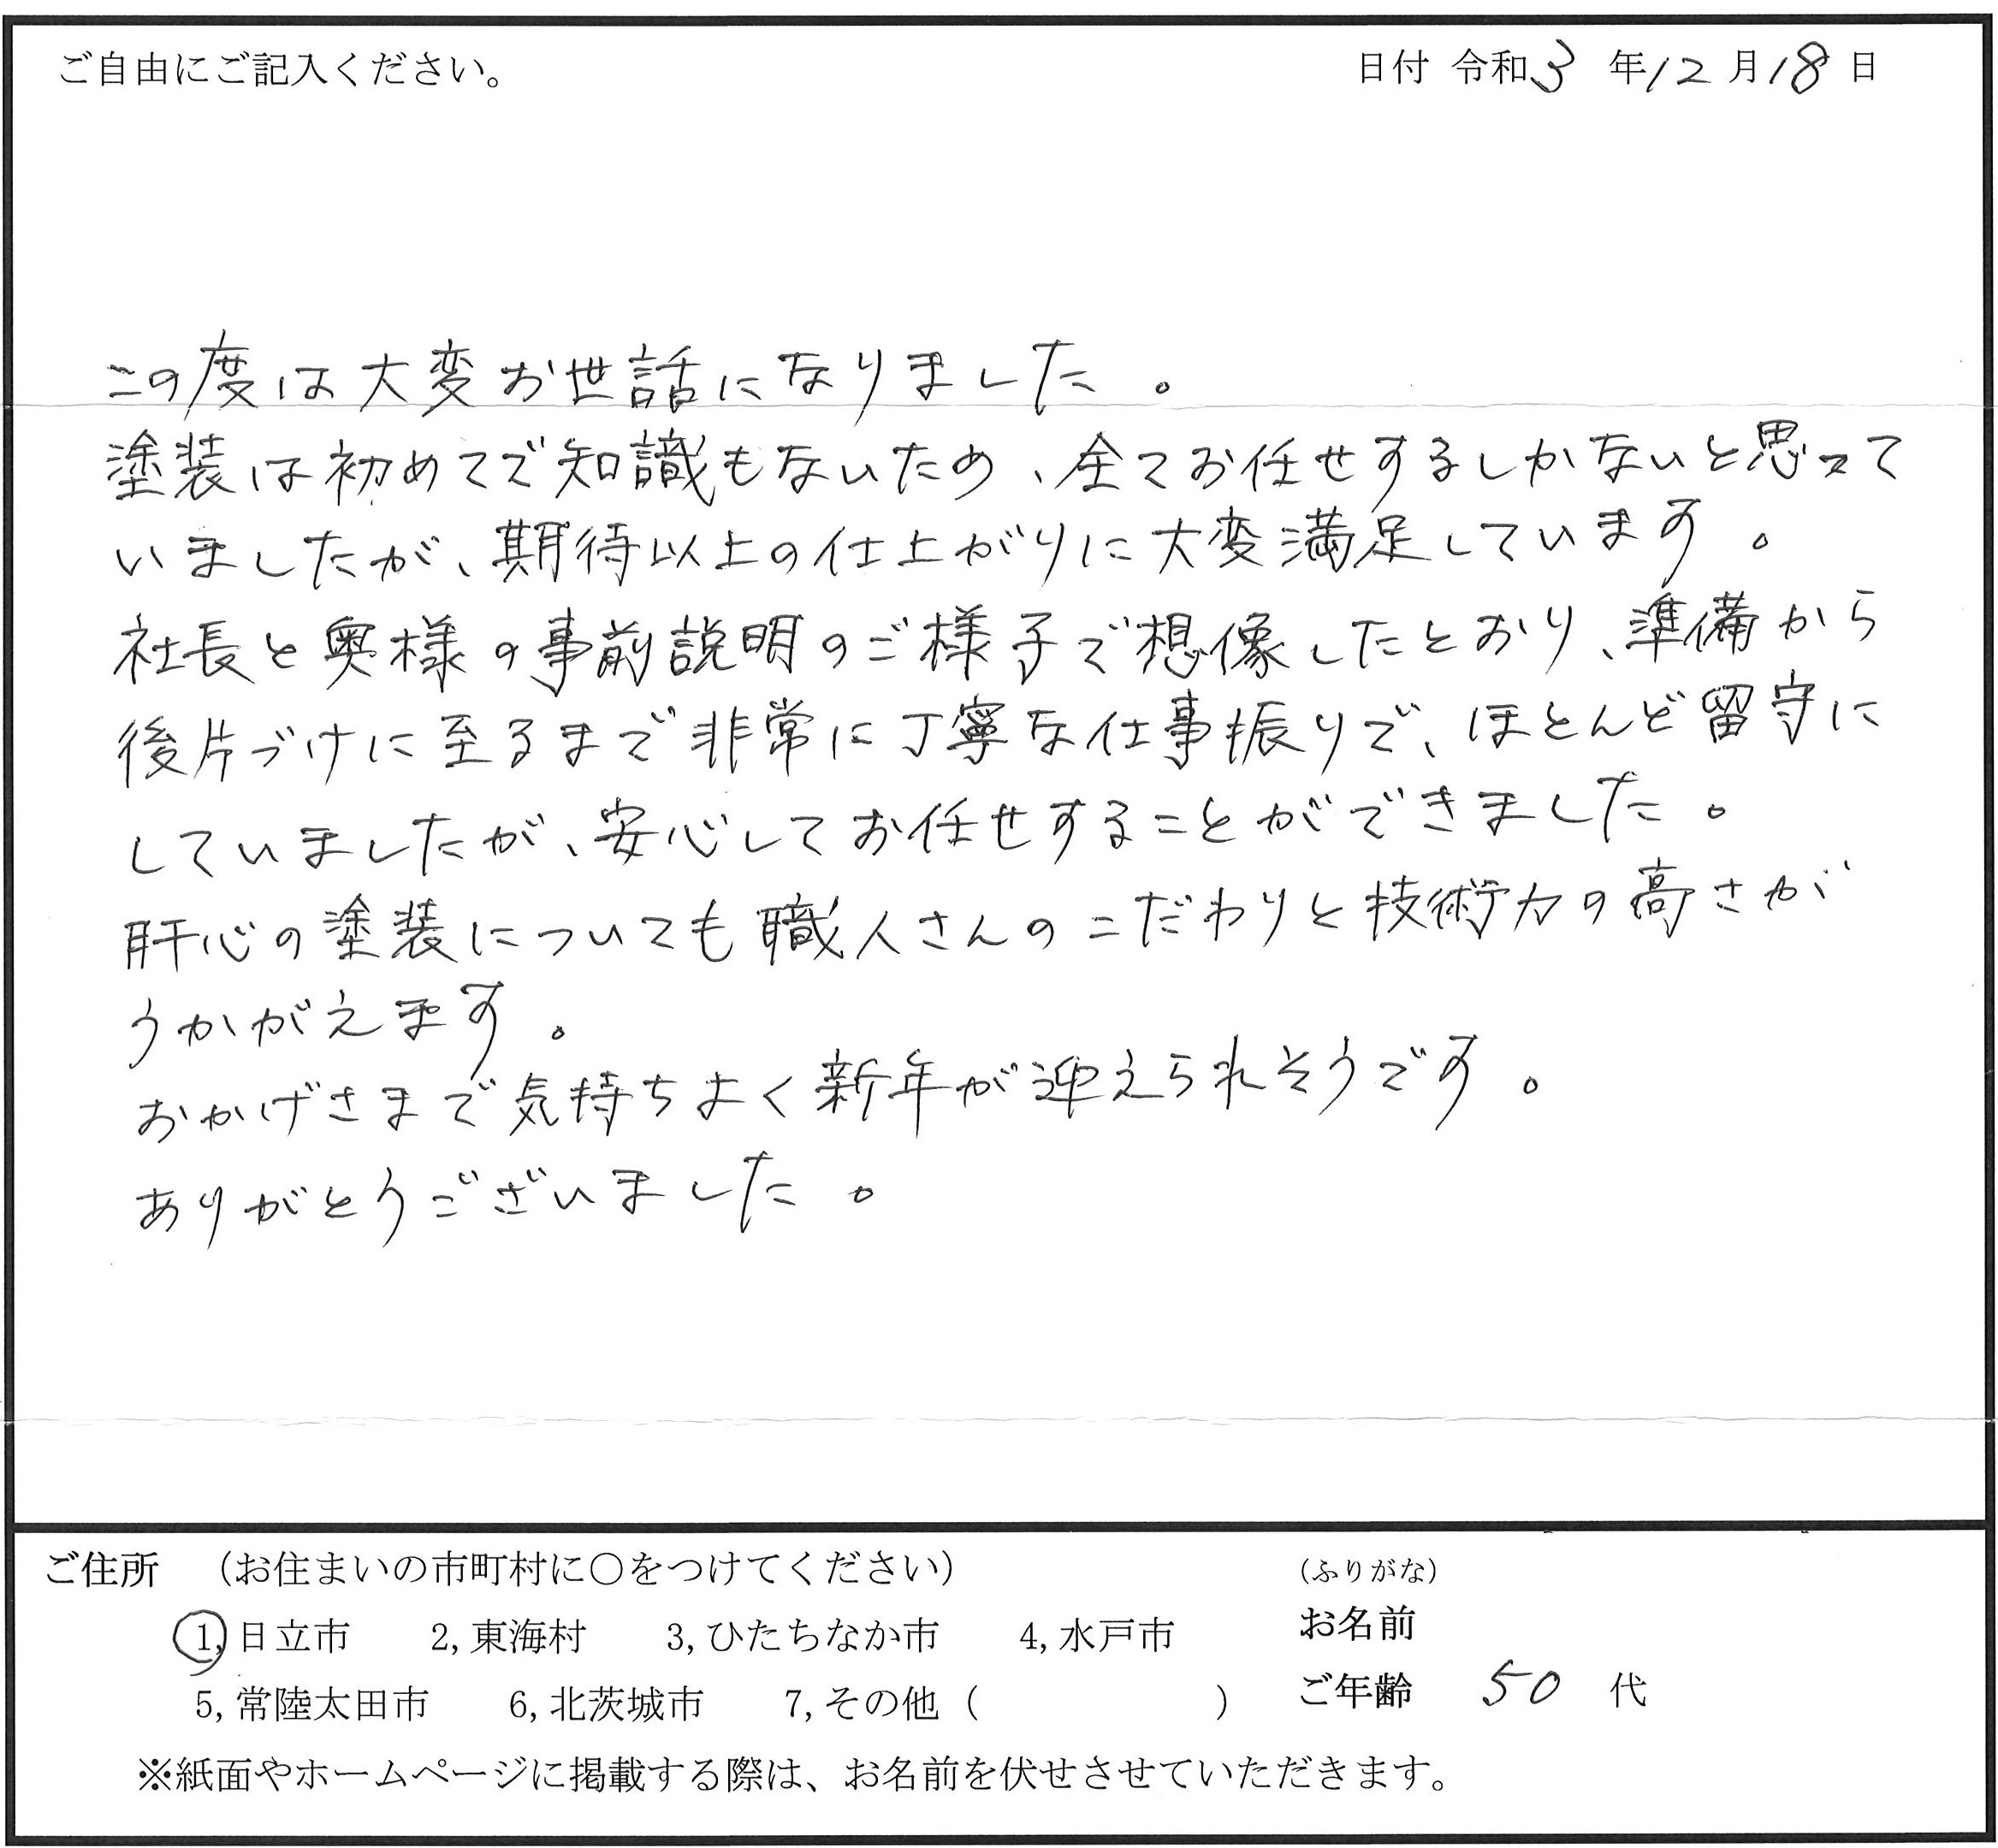 ご自由にご記入ください。 日付 令和3年12月18日
この度は大変お世話になりました。
塗装は初めてで知識もないため、全てお任せするしかないと思って
いましたが、期待以上の仕上がりに大変満足しています。
社長と奥様の事前説明のご様子で想像したとおり、準備から
後片づけに至るまで非常に丁寧な仕事振りで、ほとんど留守に
していましたが、安心してお任せすることができました。
肝心の塗装についても職人さんのこだわりと技術力の高さが
うかがえます。
おかげさまで気持ちよく新年が迎えられそうです。
ありがとうございました。
ご住所 （お住まいの市町村に○をつけてください） （ふりがな）
お名前
1,日立市 2,東海村 3,ひたちなか市 4,水戸市
5,常陸太田市 6,北茨城市 7,その他（ ） ご年齢 50 代
※紙面やホームページに掲載する際は、お名前を伏せさせていただきます。